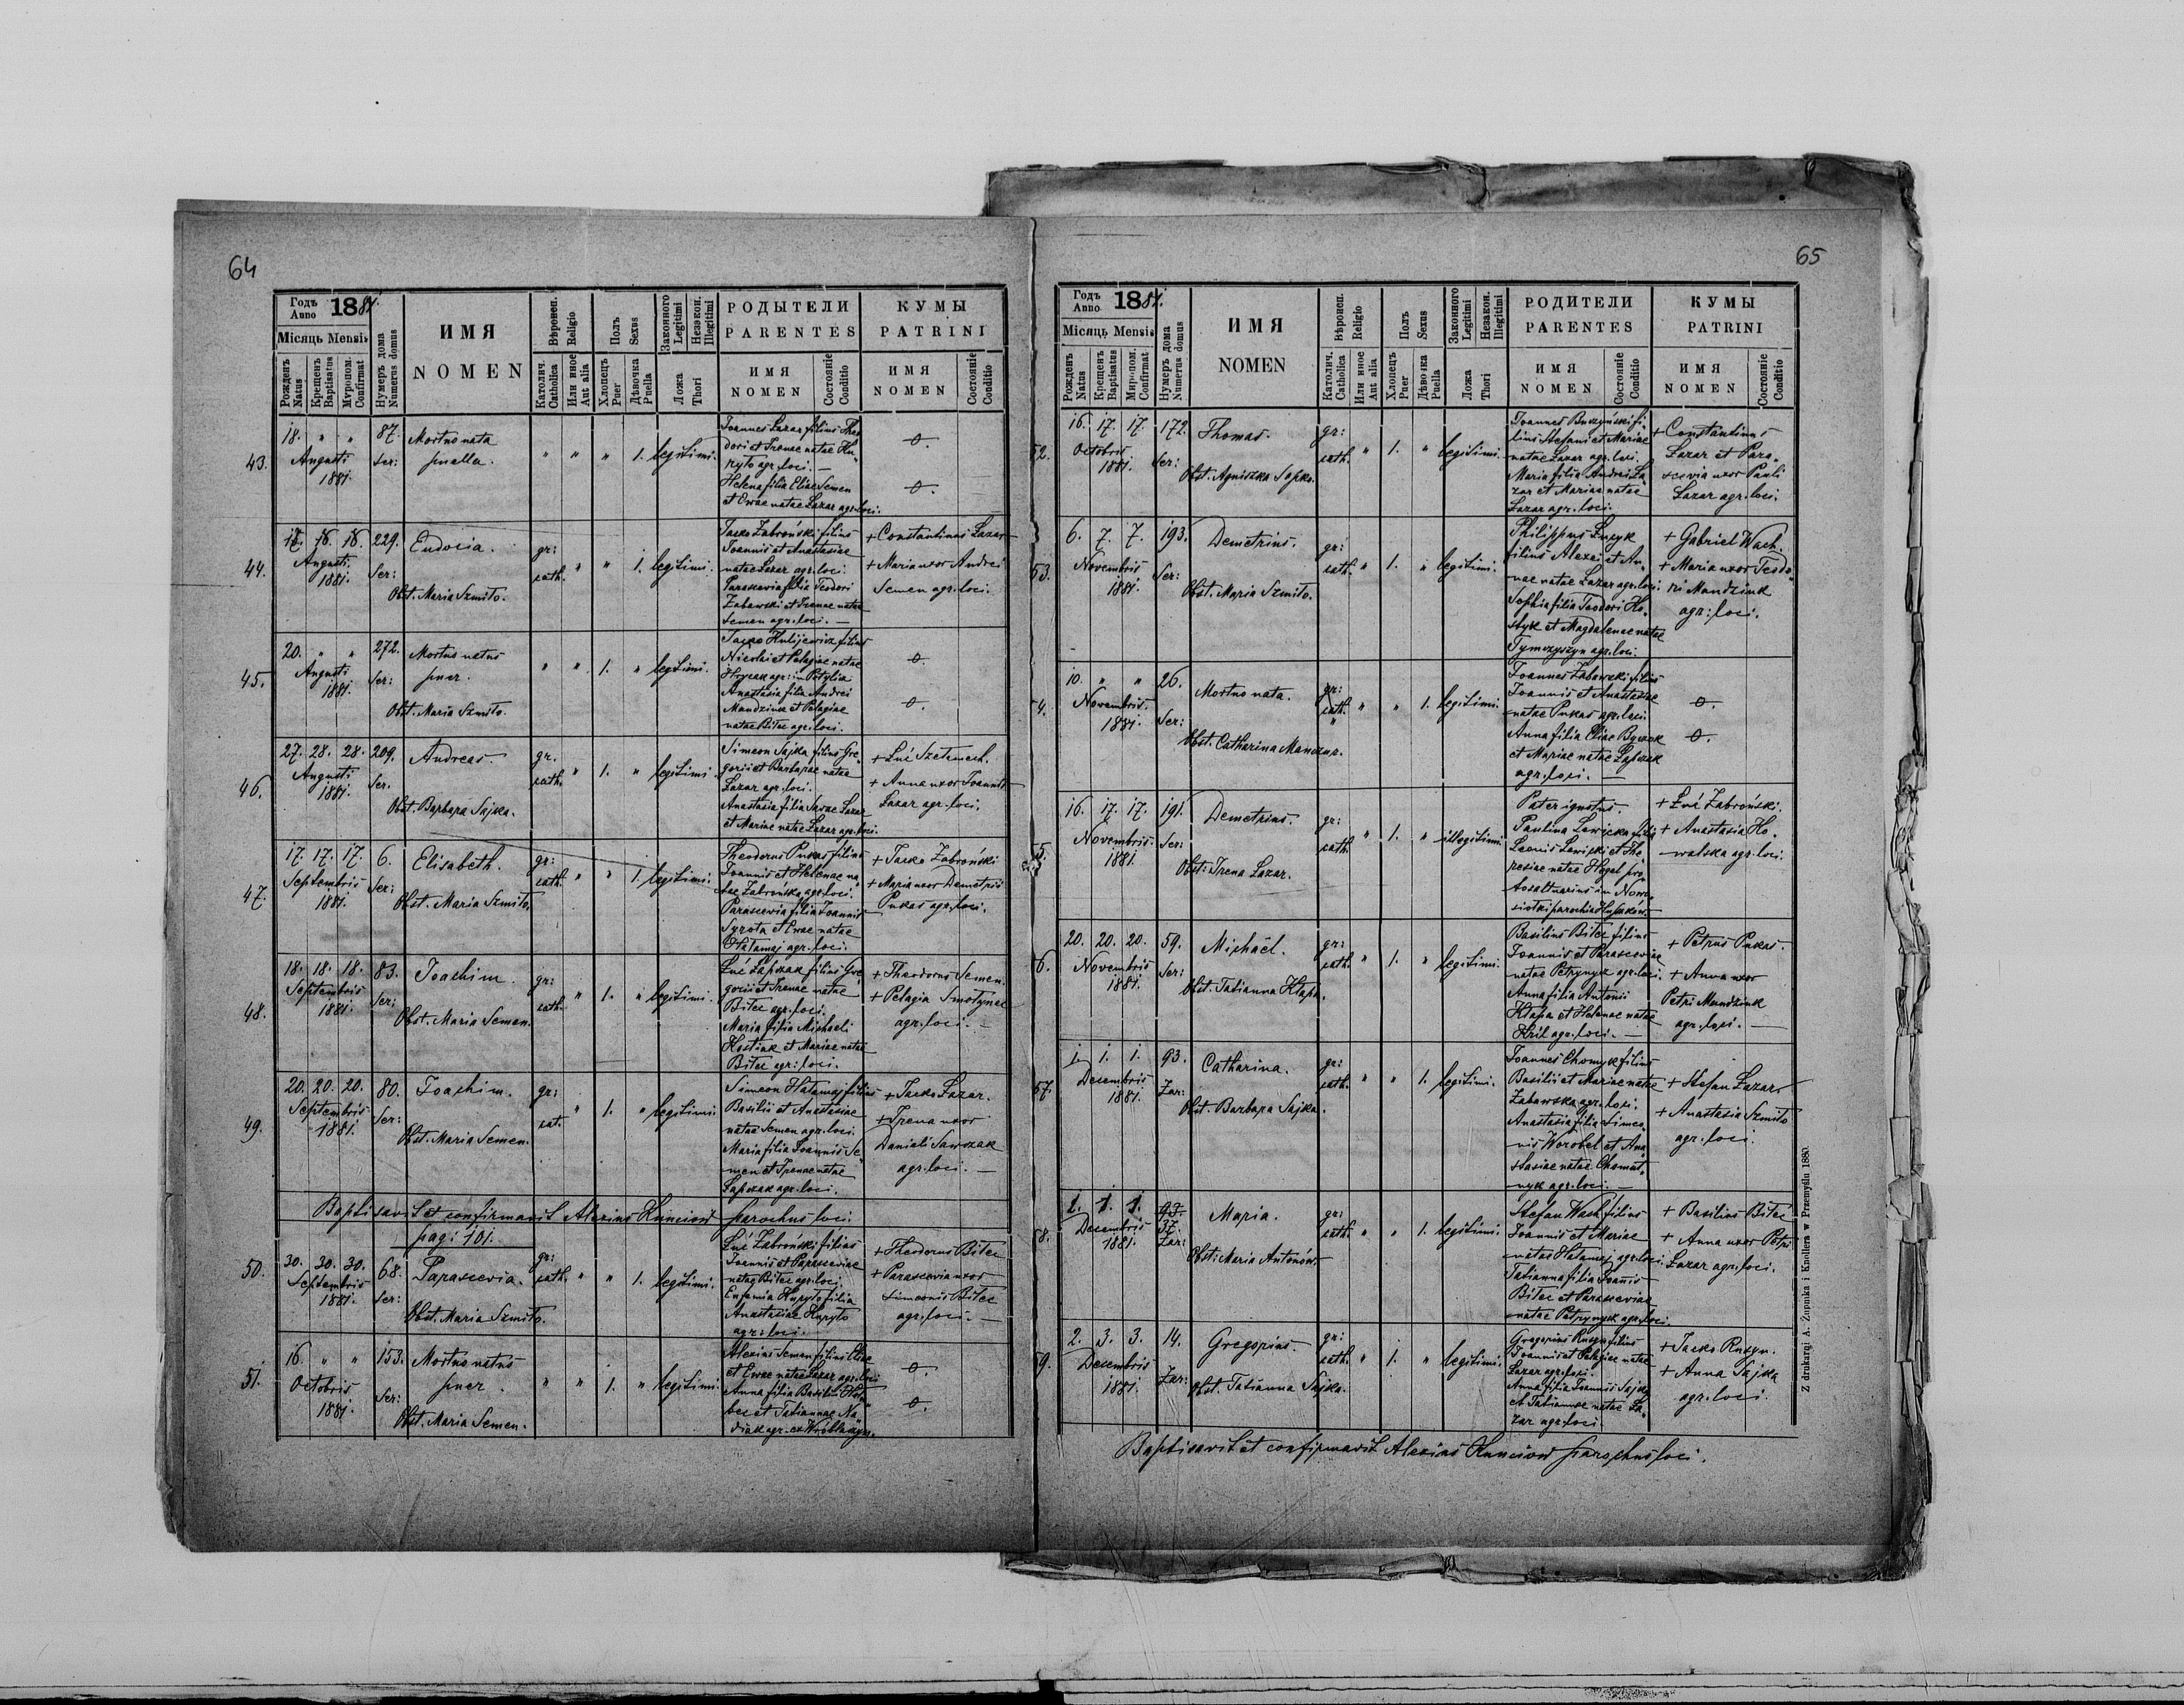 64
Годъ Anno 1881.
ИМЯ
NOMEN
Вѣроисп. Religio
Полъ Sexus
Законного Legitimi
Незакон. Illegitimi
РОДЫТЕЛИ
PARENTES
КУМЫ
PATRINI
Місяць Mensis
Рожденъ Natus
Крещенъ Baptisatus
Муропом. Confirmat
Нумеръ дома Numerus domus
Католич. Catholica
Или иное Aut alia
Хлопецъ Puer
Дѣвочка Puella
Ложа Thori
ИМЯ NOMEN
Состояніе Conditio
ИМЯ NOMEN
Состояніе Conditio
43.
18. " " 87. Mortuo nata
Augusti Ser: puella.
1881.
" " " 1. legitimi.
Joannes Lazar filius Theo
dori et Irenae natae Hu
ryło agr. loci. —
Helena filia Eliae Semen
et Ewae natae Lazar agr. loci.
0.
0.
44.
17. 18. 18. 229. Eudocia.
Augusti Ser:
1881.
Obst. Maria Szmiło.
gr: cath. " " 1. legitimi.
Jacko Zabroński filius
Joannis et Anastasiae
natae Lazar agr. loci.
Parascevia filia Teodori
Zabawski et Irenae natae
Semen agr. loci. —
+ Constantinus Lazar
+ Maria uxor Andrei
Semen agr. loci.
45.
20. " " 272. Mortuo natus
Augusti Ser: puer.
1881.
Obst. Maria Szmiło.
" " 1. " legitimi.
Nicolai et Pelagiae natae
Anastasia filia Andrei
Mandziuk et Pelagiae
natae Bilec agr. loci.
0.
0.
46.
27. 28. 28. 209. Andreas.
Augusti Ser.
1881.
Obst. Barbara Sajka.
gr. cath. " 1. " legitimi.
Simeon Sajka filius Gre
gorii et Barbarae natae
Lazar agr. loci.
Anastasia filia Savae Lazar
et Mariae natae Lazar agr. loci.
+ Anna uxor Joannis
Lazar agr. loci.
47.
17. 17. 17. 6. Elisabeth.
Septembris Ser:
1881.
Obst. Maria Szmiło.
gr: cath. " " 1. legitimi.
Theodorus Pukas filius
Joannis et Helenae na
tae Zabrońska agr. loci.
Parascevia filia Joannis
Syrota et Ewae natae
Hałamaj agr. loci.
+ Jacko Zabroński
+ Maria uxor Demetrii
Pukas agr. loci.
48.
18. 18. 18. 83. Joachim.
Septembris Ser:
1881.
Obst. Maria Semen.
gr: cath. " 1. " legitimi.
Luć Łapczak filius Gre
gorii et Irenae natae
Bilec agr. loci.
Maria filia Michaeli
Kostiuk et Mariae natae
Bilec agr: loci.
+ Theodorus Semen.
+ Pelagia Smolynec
agr. loci. —
49.
20. 20. 20. 80. Joachim.
Septembris Ser:
1881.
Obst. Maria Semen.
gr: cat. " 1. " legitimi.
Simeon Hałamaj filius
Basilii et Anastasiae
natae Semen agr. loci.
Maria filia Joannis Se
men et Irenae natae
Łapczak agr. loci.
+ Jacko Lazar.
+ Irena uxor
Danieli Sawczak
agr. loci. —
Baptisavit et confirmavit Alexius Kunciow parochus loci.
pag: 101.
50.
30. 30. 30. 68. Parascevia.
Septembris Ser:
1881.
Obst. Maria Szmiło.
gr: cath. " " 1. legitimi.
Luć Zabroński filius
Joannis et Parasceviae
natae Bilec agr. loci.
Eufemia Huryło filia
Anastasiae Huryło
agr: loci.
+ Theodorus Bilec
+ Parascevia uxor
Simeonis Bilec
agr. loci. —
51.
16. " " 153. Mortuo natus
Octobris Ser: puer.
1881.
Obst. Maria Semen.
" " 1. " legitimi.
Alexius Semen filius Eliae
et Ewae natae Lazar agr. loci
Anna filia Basilii
bec et Tatiannae Na
diak agr. ex
0.
0.
65
Годъ Anno 1881.
ИМЯ
NOMEN
Вѣроисп. Religio
Полъ Sexus
Законного Legitimi
Незакон. Illegitimi
РОДИТЕЛИ
PARENTES
КУМЫ
PATRINI
Місяць Mensis
Рожденъ Natus
Крещенъ Baptisatus
Миропом. Confirmat
Нумеръ дома Numerus domus
Католич. Catholica
Или иное Aut alia
Хлопецъ Puer
Дѣвочка Puella
Ложа Thori
ИМЯ NOMEN
Состояніе Conditio
ИМЯ NOMEN
Состояніе Conditio
52.
16. 17. 17. 172. Thomas.
Octobris Ser:
1881.
Obst. Agniszka Sopko.
gr: cath. " 1. " legitimi.
Joannes Buczyński fi
lius Stefani et Mariae
natae Lazar agr. loci.
Maria filia Andrei La
zar et Mariae natae
Lazar agr. loci.
+ Constantinus
Lazar et Para
scevia uxor Pauli
Lazar agr. loci.
53.
6. 7. 7. 193. Demetrius.
Novembris Ser:
1881.
Obst. Maria Szmiło.
gr: cath. " 1. " legitimi.
Philippus Łuzyk
filius Alexei et An
nae natae Lazar agr. loci
Sophia filia Teodori Ho
styk et Magdalenae natae
Tymczyszyn agr. loci.
+ Gabriel Wach.
+ Maria uxor Teodo
ri Mandziuk
agr: loci.
4.
10. " " 26. Mortuo nata.
Novembris Ser:
1881.
Obst. Catharina
gr: cath. " " 1. legitimi.
Joannes Zabawski filius
Joannis et Anastasiae
natae Pukas agr. loci.
Anna filia Eliae
et Mariae natae Łapczak
agr. loci. —
0.
0.
5.
16. 17. 17. 191. Demetrius.
Novembris Ser:
1881.
Obst: Irena Lazar.
gr: cath. " 1. " illegitimi.
Pater ignotus.
Paulina Lewicka filia
Leonis Lewicki et The
resiae natae
+ Luć Zabroński.
+ Anastasia Ho
walska agr. loci.
6.
20. 20. 20. 59. Michaël.
Novembris Ser:
1881.
Obst. Tatianna Kłapa.
gr: cath. " 1. " legitimi.
Basilius Bilec filius
Joannis et Parasceviae
natae Petrynyk agr. loci.
Anna filia Antonii
Kłapa et Helenae natae
Hril agr. loci. —
+ Petrus Pukas.
+ Anna uxor
Petri Mandziuk
agr. loci. —
57.
1. 1. 1. 93. Catharina.
Decembris Zar:
1881.
Obst. Barbara Sajka.
gr: cath. " " 1. legitimi.
Joannes Chomyk filius
Basilii et Mariae natae
Zabawska agr. loci.
Anastasia filia Simeo
nis Worobel et Ana
stasiae natae
nyk agr. loci. —
+ Stefan Lazar
+ Anastasia Szmiło
agr. loci.
8.
1. 1. 1. 93. 37. Maria.
Decembris Zar:
1881.
Obst: Maria Antonów.
gr: cath. " " 1. legitimi.
Stefan Wach filius
Joannis et Mariae
natae Hałamaj agr. loci
Tatianna filia Joannis
Bilec et Parasceviae
natae Petrynyk agr. loci.
+ Basilius Bilec
+ Anna uxor Petri
Lazar agr. loci.
9.
2. 3. 3. 14. Gregorius.
Decembris Zar:
1881.
Obst. Tatianna Sajka.
gr: cath. " 1. " legitimi.
Gregorius Rusyn filius
Joannis et Pelagiae natae
Lazar agr. loci.
Anna filia Joannis Sajka
et Tatiannae natae La
zar agr. loci.
+ Jacko Rusyn.
+ Anna Sajka
agr. loci.
Baptisavit et confirmavit Alexius Kunciow parochus loci.
Z drukarni A. Żupnika i Knollera w Przemyślu 1880.